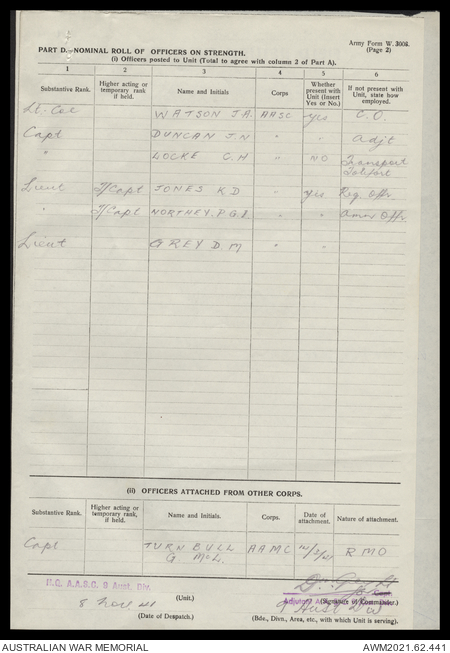 Army Form W. 3008.
(Page 2)
PART D.—NOMINAL ROLL OF OFFICERS ON STRENGTH.
(i) Officers posted to Unit (Total to agree with column 2 of Part A).
1 2 3 4 5 6
Substantive Rank. Higher acting or temporary rank if held. Name and Initials Corps Whether present with Unit (Insert Yes or No.) If not present with Unit, state how employed.
Lt. Col WATSON J.A. AASC yes C.O.
Capt DUNCAN J.N " " Adjt
" LOCKE C.H " NO Transport
Lieut T/Capt JONES K D " yes Reg. Offr
" T/Capt NORTHEY. P.G. " "
Lieut GREY D M " "
(ii) OFFICERS ATTACHED FROM OTHER CORPS.
Substantive Rank. Higher acting or temporary rank, if held. Name and Initials. Corps. Date of attachment. Nature of attachment.
Capt TURNBULL AAMC RMO
G McL.
H.Q. A.A.S.C. 8 Aust. Div.
(Unit.)
(Signature of Commander.)
8 Nov 41
(Date of Despatch.)
(Bde., Divn., Area, etc., with which Unit is serving).
AUSTRALIAN WAR MEMORIAL
AWM2021.62.441